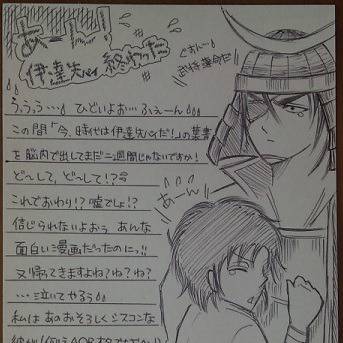 あーー!!
伊達先パイ終わった
ぐすん…
武将革命だ
うぅぅ…ひどいよぉ…ふぇーん
この間「今、時代は伊達先パイだ!」の葉書
を脳内で出してまだ二週間じゃないですか!
ど〜して、ど〜して!?
これでおわり!?嘘でしょ!?
あーん
信じられないよぉぅ あんな
面白い漫画だったのにっ!!
又帰ってきますよね?ね?ね?
…泣いてやるぅ
私はあのおそろしくシスコンな